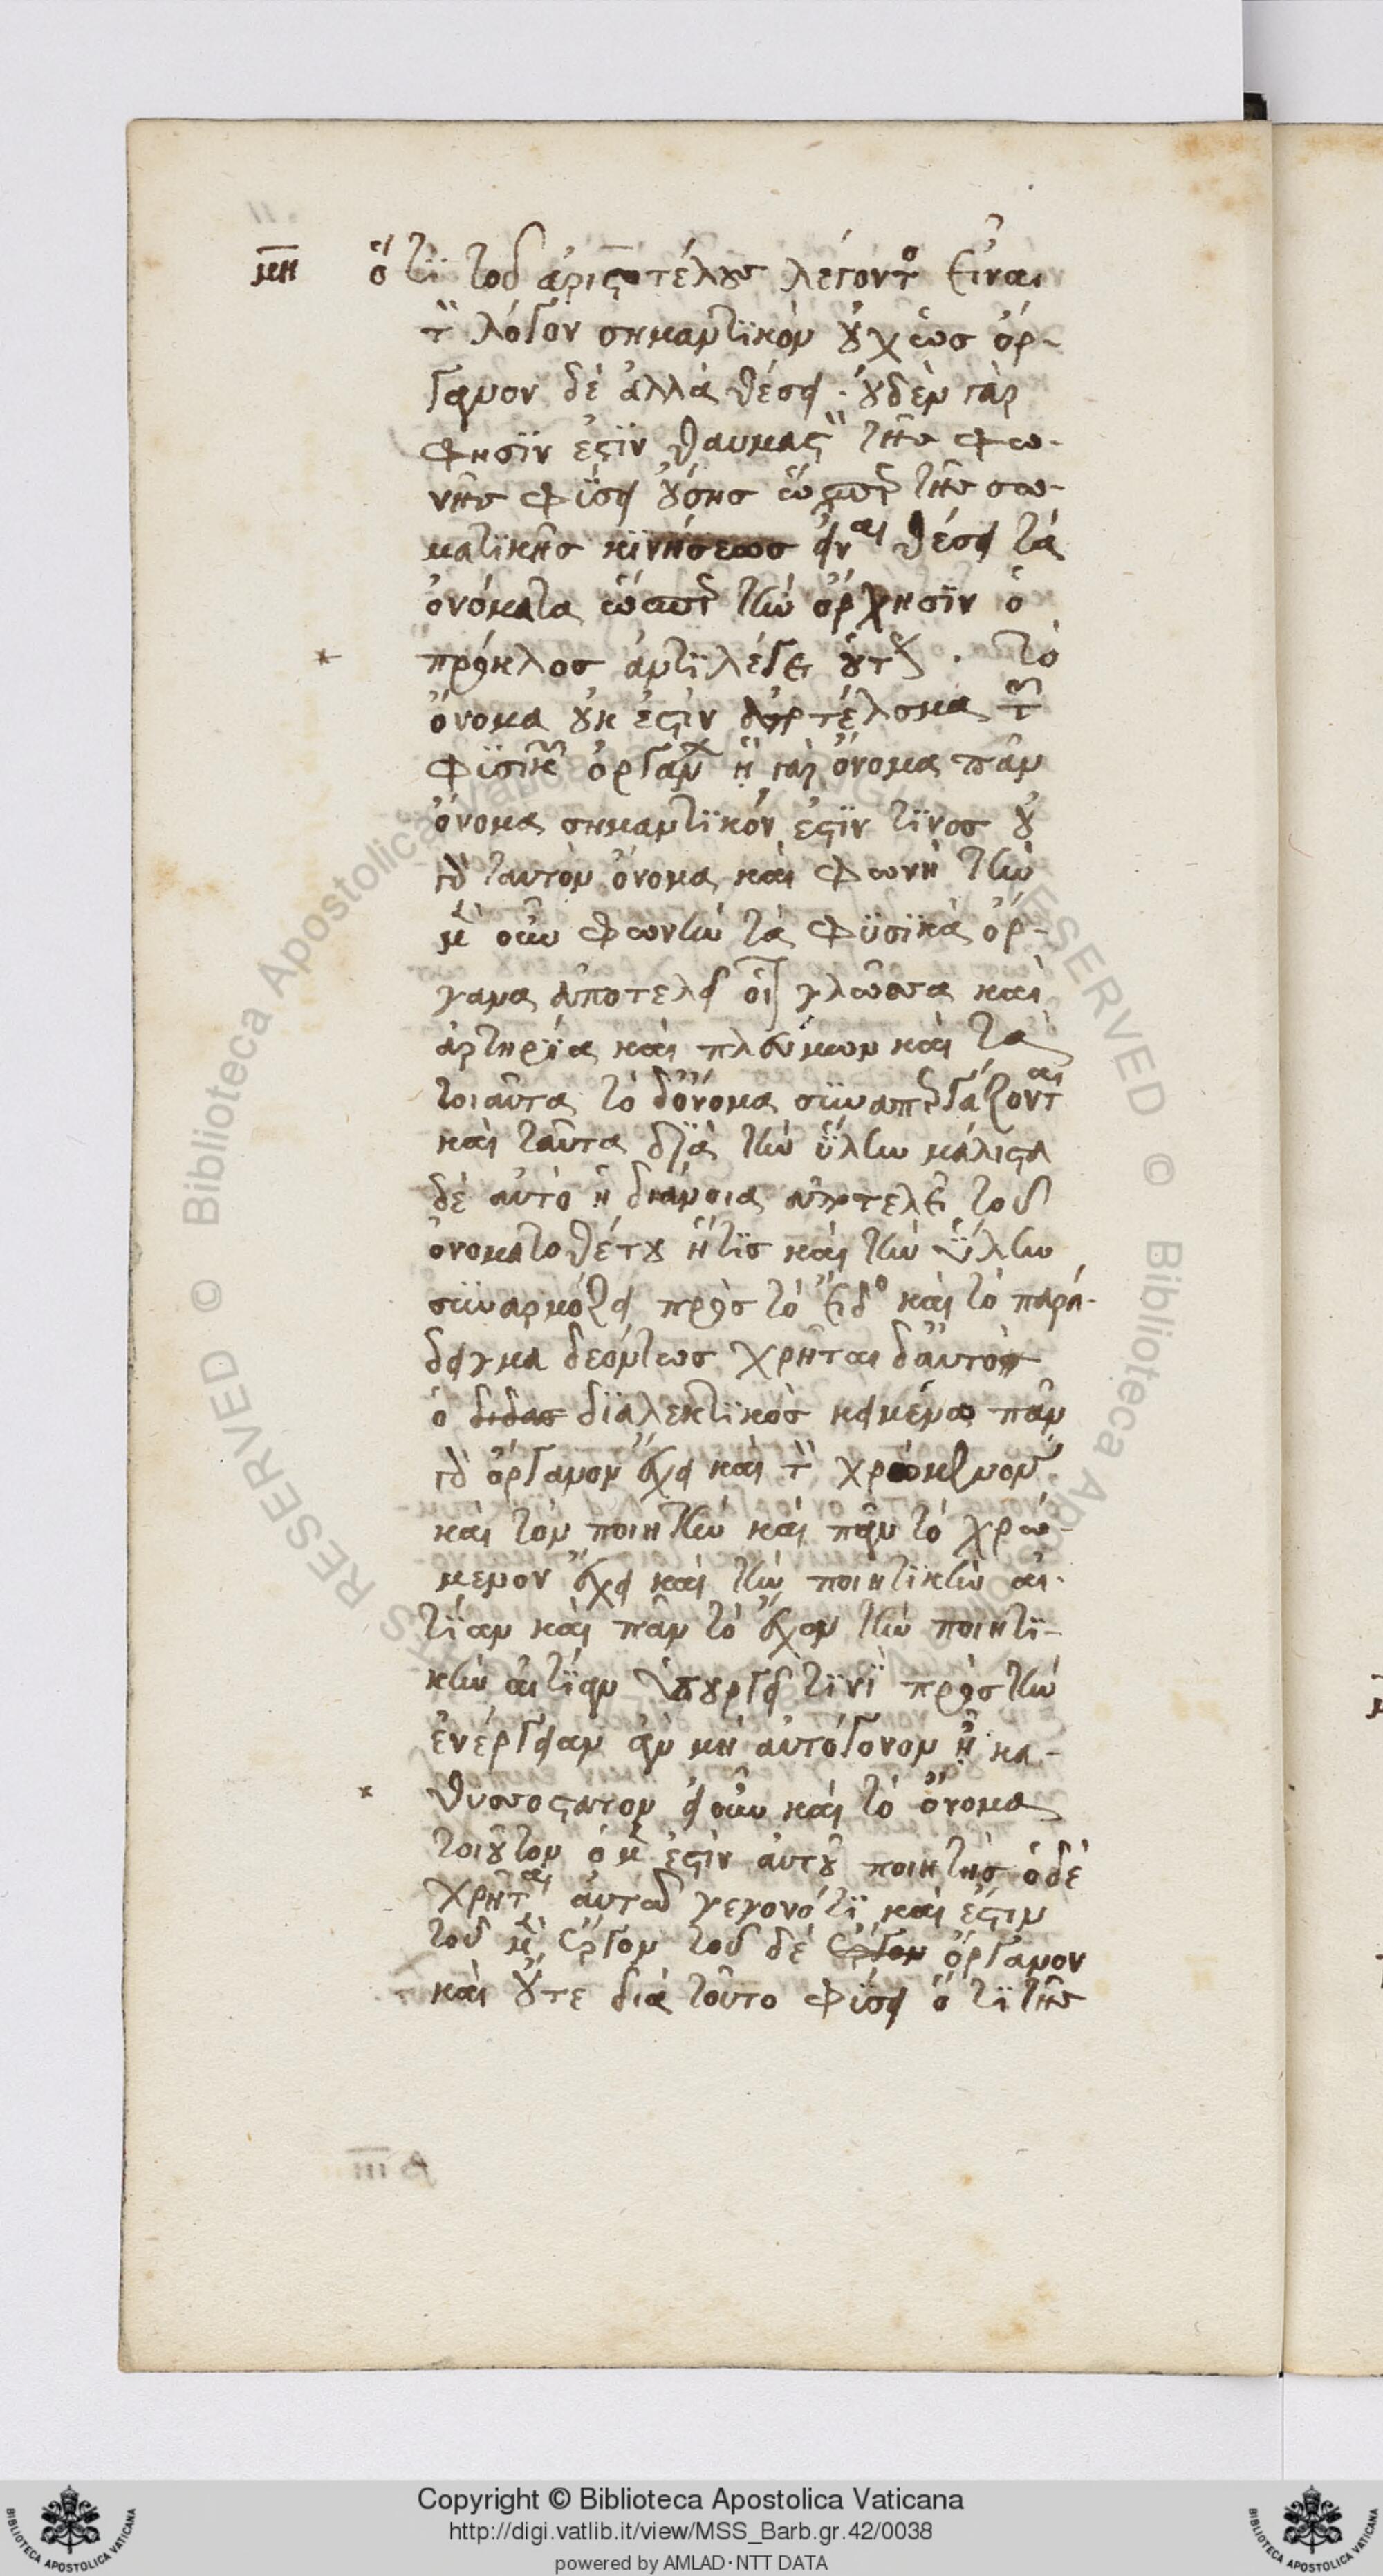 μη ὅτι τοῦ ἀριστοτέλους λέγοντος εἶναι
τὸν λόγον σημαντικὸν οὐχ ὡς ὄρ-
γανον δὲ ἀλλὰ θέσει. οὐδὲν γὰρ
φησὶν ἐστὶν θαυμαστὸν τῆς φω-
νῆς φύσει οὔσης ὥσπερ τῆς σω-
ματικῆς κινήσεως εἶναι θέσει τὰ
ὀνόματα ὥσπερ τὴν ὄρχησιν ὁ
πρόκλος ἀντιλέγει οὕτως. τὸ
ὄνομα οὐκ ἐστὶν ἀποτέλεσμα τῶν
φυσικῶν ὀργάνων ἧ γὰρ ὄνομα πᾶν
ὄνομα σημαντικόν ἐστιν τινὸς οὐ
γὰρ ταυτὸν ὄνομα καὶ φωνὴ τὴν
μὲν οὖν φωνὴν τὰ φυσικὰ ὄρ-
γανα ἀποτελεῖ οἷον γλῶσσα καὶ
ἀρτηρία καὶ πλεύμων καὶ τὰ
τοιαῦτα τὸ δ' ὄνομα συναπεργάζονται
καὶ ταῦτα διὰ τὴν ὕλην μάλιστα
δὲ αὐτὸ ἡ διάνοια ἀποτελεῖ τοῦ
ὀνοματοθέτου ἥτις καὶ τὴν ὕλην
συναρμόζει πρὸς τὸ εἶδος καὶ τὸ παρά-
δειγμα δεόντως χρῆται δ' αὐτὸ
ὁ διδας διαλεκτικὸς κείμενο πᾶν
γὰρ ὄργανον ἔχει καὶ τὸν χρώμενον
καὶ τὸν ποιητὴν καὶ πᾶν τὸ χρώ-
μενον ἔχει καὶ τὴν ποιητικὴν αἰ-
τίαν καὶ πᾶν τὸ ἔχον τὴν ποιητι-
κὴν αἰτίαν ὑπουργεῖ τινὶ πρὸς τὴν
ἐνέργειαν ἂν μὴ αὐτόγονον ἦ κα-
θυποστατον εἰ οὖν καὶ τὸ ὄνομα
τοιοῦτον ὁ μὲν ἐστὶν αὐτοῦ ποιητὴς ὁ δὲ
χρῆται αὐτῶ γεγονότι καὶ ἔστιν
τοῦ μὲν ἔργον τοῦ δὲ ἔργον ὄργανον
καὶ οὔτε διὰ τοῦτο φύσει ὅτι τῆς